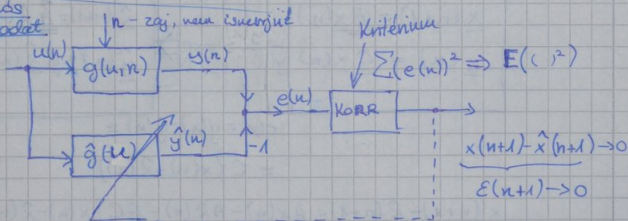 ás
adat
n - zaj, nem ismerjük
Kritérium
u(n)
g(u,n)
y(n)
∑(e(n))² ⇒ E( ( )²)
e(n)
KORR
ĝ(u)
ŷ(n)
-1
x(n+1) - x̂(n+1) → 0
ε(n+1) → 0